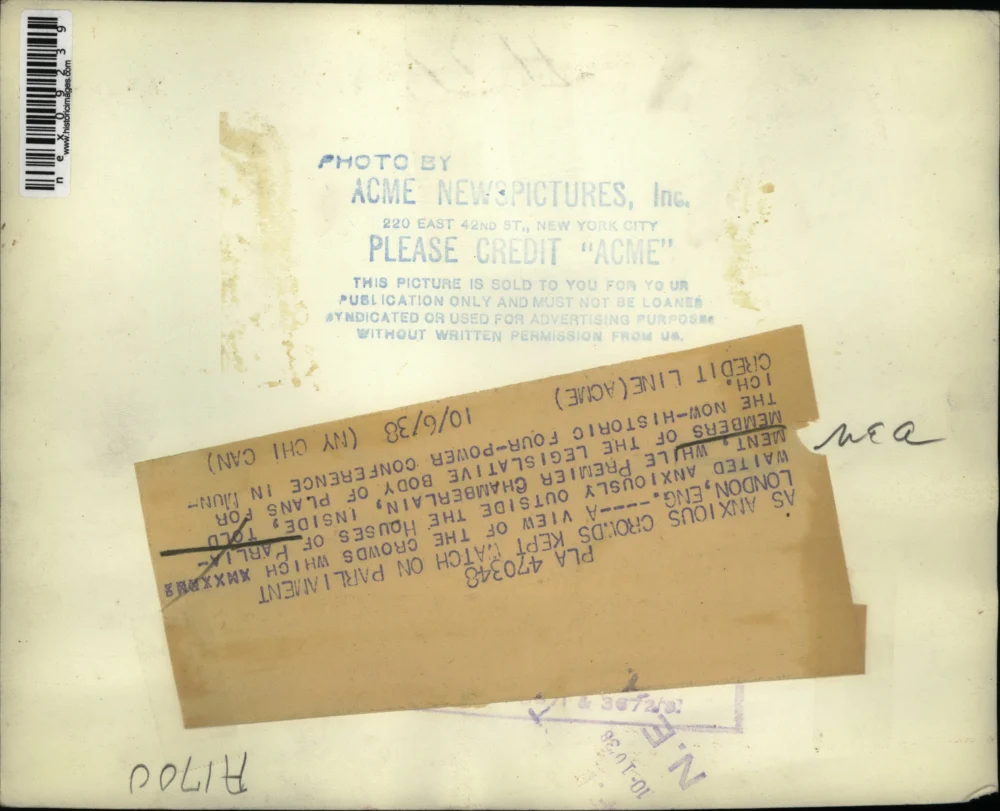 nex09239
www.historicimages.com
PHOTO BY
ACME NEWSPICTURES, Inc.
220 EAST 42ND ST., NEW YORK CITY
PLEASE CREDIT "ACME"
THIS PICTURE IS SOLD TO YOU FOR YOUR
PUBLICATION ONLY AND MUST NOT BE LOANED
SYNDICATED OR USED FOR ADVERTISING PURPOSES
WITHOUT WRITTEN PERMISSION FROM US.
PLA 470348
AS ANXIOUS CROWDS KEPT WATCH ON PARLIAMENT
LONDON, ENG. ----A VIEW OF THE CROWDS WHICH
WAITED ANXIOUSLY OUTSIDE THE HOUSES OF PARLIA-
MENT WHILE PREMIER CHAMBERLAIN, INSIDE, TOLD
MEMBERS OF THE LEGISLATIVE BODY OF PLANS FOR
THE NOW-HISTORIC FOUR-POWER CONFERENCE IN MUN-
ICH.
CREDIT LINE (ACME) 10/6/38 (NY CHI CAN)
NEA
N.E.
10-10-38
A1700